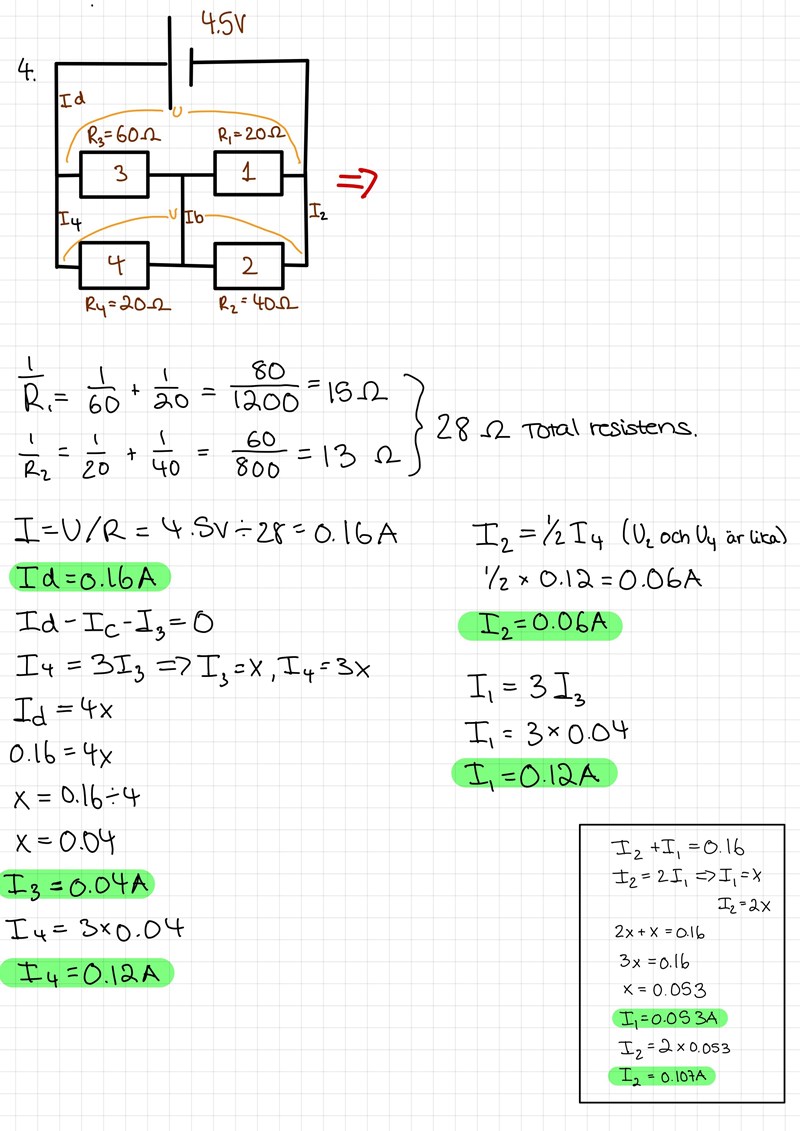 4.5V
4.
Id
U
R₃=60Ω
R₁=20Ω
3
1
=>
I₄
U
Ib
I₂
4
2
R₄=20Ω
R₂=40Ω
1/R₁ = 1/60 + 1/20 = 80/1200 = 15 Ω
1/R₂ = 1/20 + 1/40 = 60/800 = 13 Ω
28 Ω Total resistens.
I=U/R = 4.5V÷28 = 0.16A
Id=0.16A
Id-Ic-I₃=0
I₄ = 3I₃ => I₃=x, I₄=3x
Id = 4x
0.16=4x
x = 0.16÷4
x = 0.04
I₃=0.04A
I₄= 3×0.04
I₄=0.12A
I₂=½I₄ (U₂ och U₄ är lika)
½ × 0.12=0.06A
I₂=0.06A
I₁ = 3I₃
I₁ = 3×0.04
I₁=0.12A
I₂+I₁=0.16
I₂=2I₁ =>I₁=x
I₂=2x
2x+x=0.16
3x=0.16
x=0.053
I₁=0.053A
I₂=2×0.053
I₂ = 0.107A